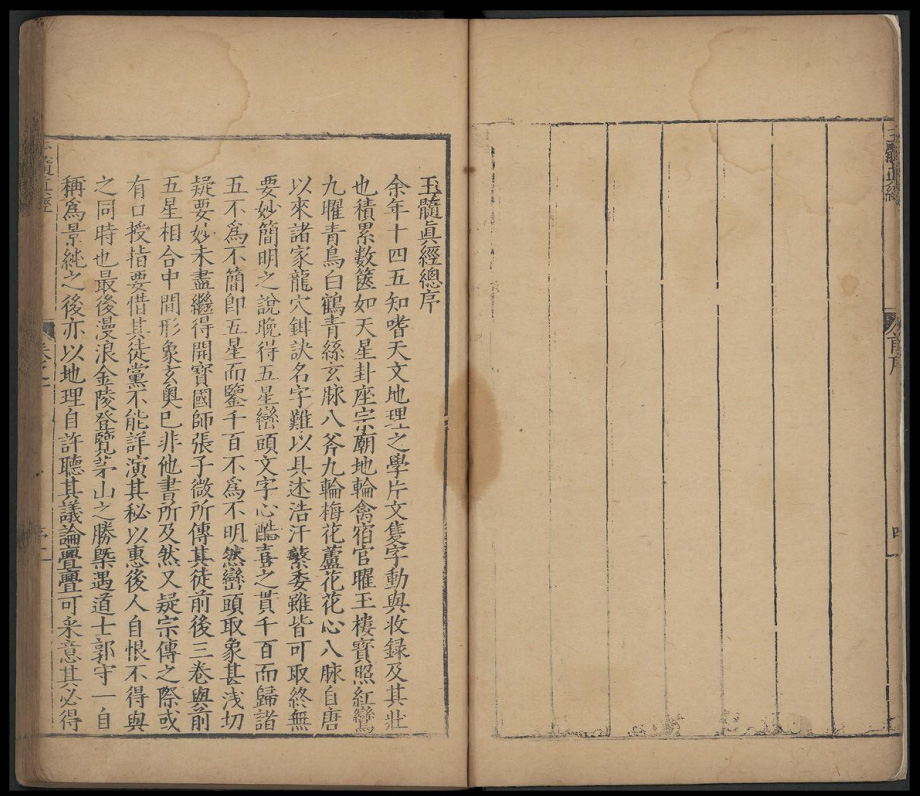 玉髓正經
前序
四
玉髓眞經總序
余年十四五知嗜天文地理之學片文隻字動與收録及其壯
也積累數篋如天星卦座宗廟地輪禽宿官曜王樓寳照紅鸞
九曜青鳥白鶴青絲玄脉八斧九輪梅花蘆花花心八脉自唐
以來諸家龍穴鉗訣名字難以具述浩汗蘩委雖皆可取終無
要妙簡明之說晚得五星巒頭文字心酷喜之貫千百而歸諸
五不爲不簡卽五星而鑒千百不爲不明然巒頭取象甚浅切
疑要妙未盡繼得開寳國師張子微所傳其徒前後三卷與前
五星相合中間形象玄奥已非他書所及然又疑宗傳之際或
有口授指要借其徒黨不能詳演其秘以惠後人自恨不得與
之同時也最後漫浪金陵登覽茅山之勝槩遇道士郭守一自
稱爲景純之後亦以地理自許聽其議論亹亹可采意其必得
髓眞經
卷之一
序一